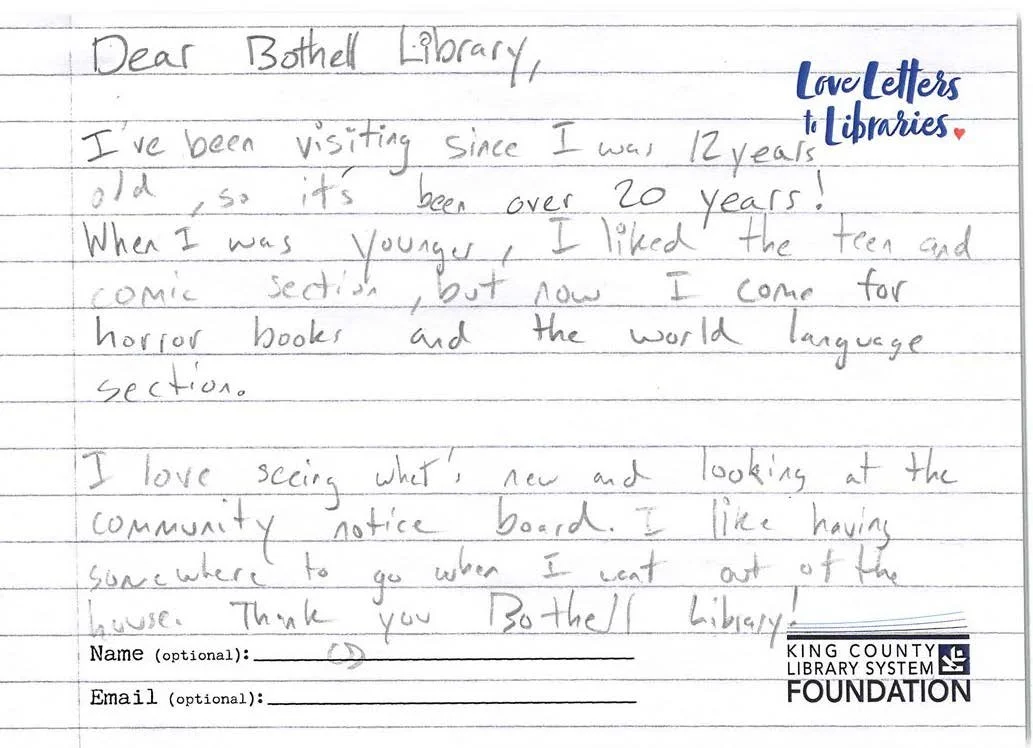 Dear Bothell Library,
Love Letters
to Libraries.
I've been visiting since I was 12 years
old, so it's been over 20 years!
When I was younger, I liked the teen and
comic section, but now I come for
horror books and the world language
section.
I love seeing what's new and looking at the
community notice board. I like having
somewhere to go when I want out of the
house. Thank you Bothell Library!
Name (optional):
Email (optional):
KING COUNTY
LIBRARY SYSTEM
FOUNDATION